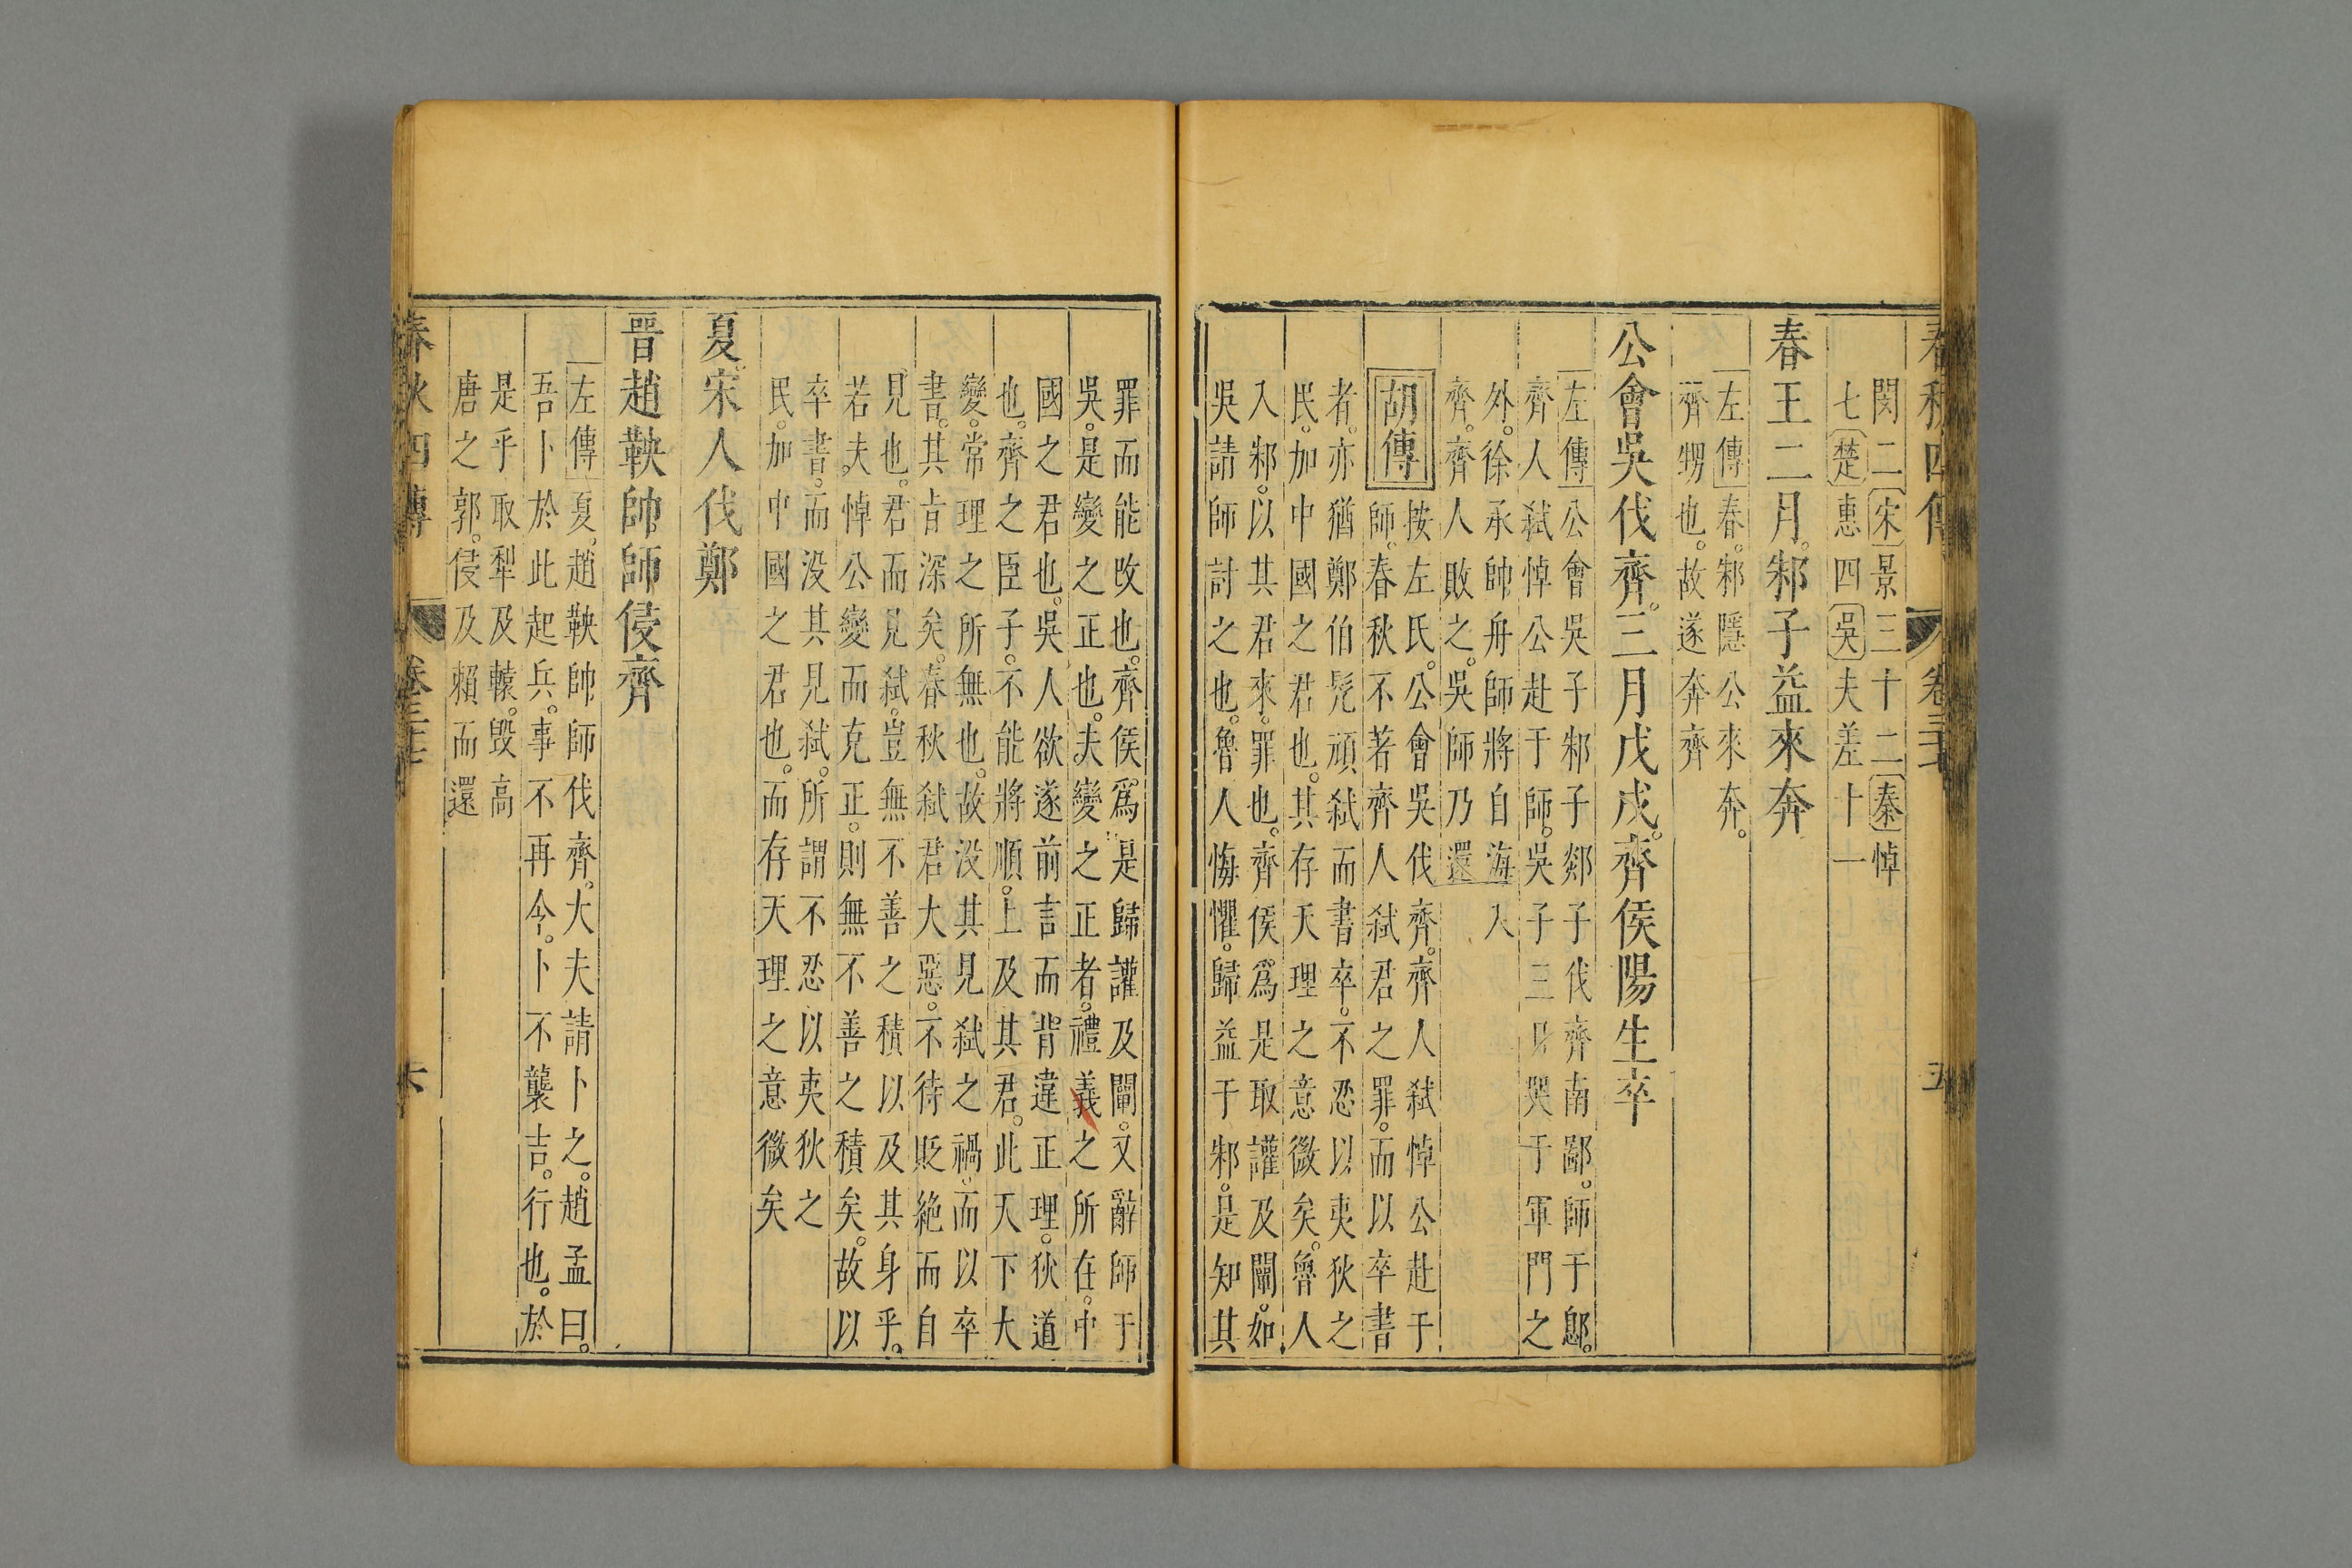 春秋四傳 卷三十 五
閔二宋景三十二秦悼
七楚惠四吳夫差十一
春王二月邾子益來奔
左傳春邾隱公來奔。
齊甥也。故遂奔齊
公會吳伐齊。三月戊戌。齊侯陽生卒
左傳公會吳子邾子郯子伐齊南鄙。師于郎。
齊人弒悼公赴于師。吳子三日哭于軍門之
外。徐承帥舟師將自海入
齊。齊人敗之。吳師乃還
胡傳按左氏。公會吳伐齊。齊人弒悼公赴于
師。春秋不著齊人弒君之罪。而以卒書
者。亦猶鄭伯髠頑弒而書卒。不忍以夷狄之
民。加中國之君也。其存天理之意微矣。魯人
入邾。以其君來。罪也。齊侯爲是取讙及闡。如
吳請師討之也。魯人悔懼。歸益于邾。是知其
罪而能改也。齊侯爲是歸讙及闡。又辭師于
吳。是變之正也。夫變之正者。禮義之所在。中
國之君也。吳人欲遂前言而背違正理。狄道
也。齊之臣子。不能將順。上及其君。此天下大
變。常理之所無也。故没其見弒之禍。而以卒
書。其旨深矣。春秋弒君大惡。不待貶絶而自
見也。君而見弒。豈無不善之積以及其身乎。
若夫悼公變而克正。則無不善之積矣。故以
卒書。而没其見弒。所謂不忍以夷狄之
民。加中國之君也。而存天理之意微矣
夏宋人伐鄭
晉趙鞅帥師侵齊
左傳夏。趙鞅帥師伐齊。大夫請卜之。趙孟曰。
吾卜於此起兵。事不再令。卜不襲吉。行也。於
是乎取犁及轅。毀高
唐之郭。侵及賴而還
春秋四傳 卷三十 六